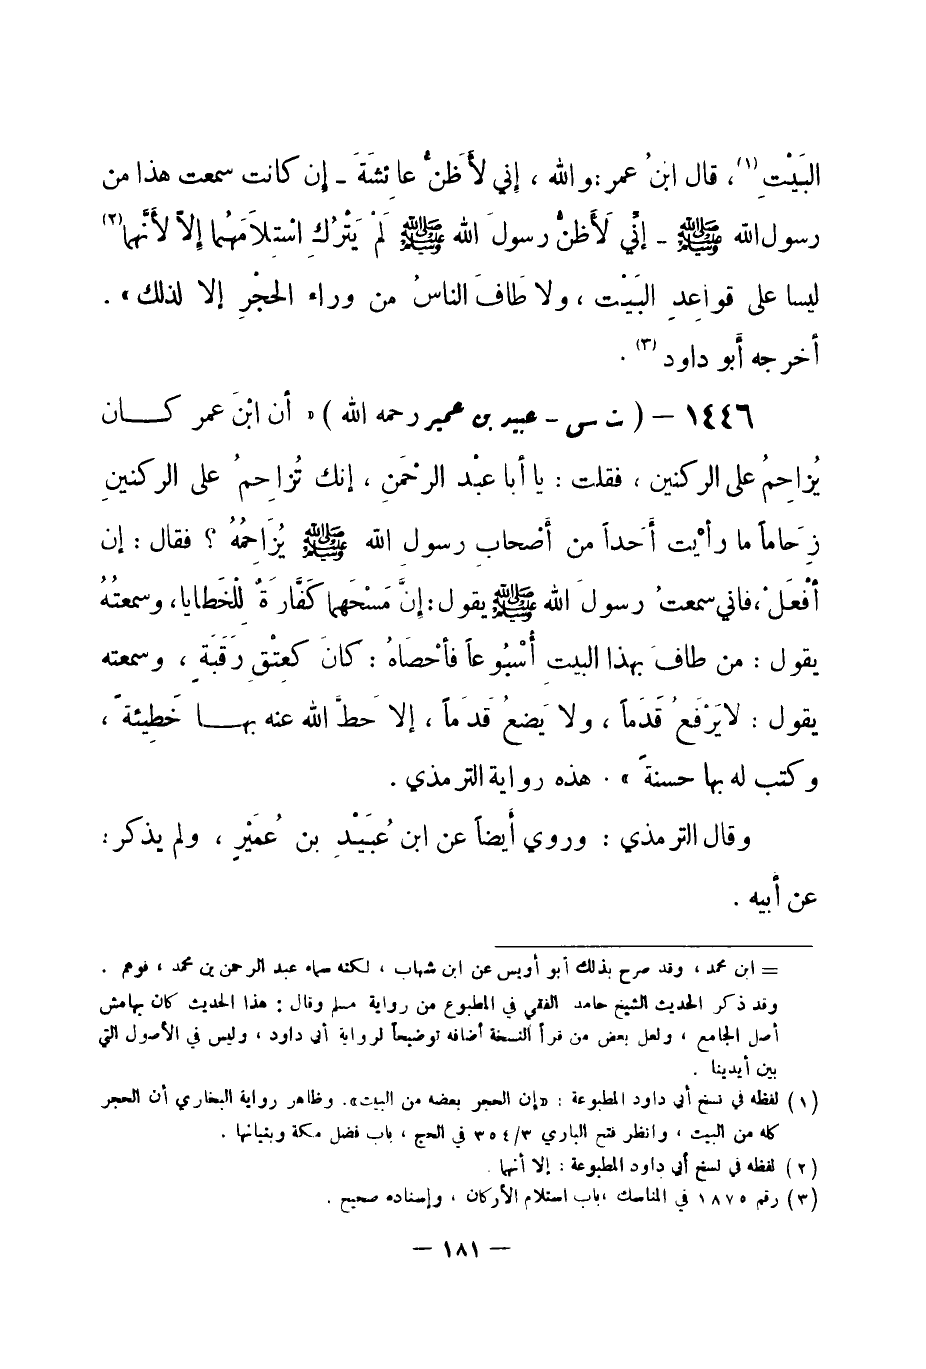 البَيْتِ(١)، قال ابنُ عمر: والله ، إني لأظنُّ عائشَةَ ـ إن كانت سمعت هذا من
رسول الله ﷺ ـ إنِّي لَأَظنُّ رسولَ الله ﷺ لَمْ يَتْرُكِ اسْتِلاَمَهُما إلاَّ لأَنَّهما(٢)
ليسا على قواعدِ البَيْت ، ولا طَافَ الناسُ من وراء الحجْرِ إلا لذلك » .
أخرجه أَبو داود(٣) .
١٤٤٦ – ( ت س ـ عبيد بن عمير رحمه الله ) « أن ابْنَ عمر كـــان
يُزاحِمُ على الركنين ، فقلت : يا أبا عبْد الرحْمَنِ ، إنك تُزاحِمُ على الركنينِ
زِحَاماً ما رأَيْت أَحَداً من أَصْحابِ رسولِ الله ﷺ يُزَاحِمُهُ ؟ فقال : إن
أفْعَلْ ، فاني سمعتُ رسولَ الله ﷺ يقول : إنَّ مَسْحَهما كَفَّارَةٌ لِلْخَطايا ، وسمعتُهُ
يقول : من طافَ بهذا البيت أُسْبُوعاً فأحْصَاهُ : كانَ كَعِتْقِ رَقَبَةٍ ، وسمعته
يقول : لا يَرْفَعُ قَدَماً ، ولا يَضعُ قَدَماً ، إلا حَطَّ الله عنه بهـــا خَطِيئةً ،
وكتب له بها حسنةً » . هذه رواية الترمذي .
وقال الترمذي : وروي أَيضاً عن ابن عُبَيْدِ بن عُمَيْرٍ ، ولم يذكر :
عن أَبيه .
= ابن محمد ، وقد صرح بذلك أبو أويس عن ابن شهاب ، لكنه سماه عبد الرحمن بن محمد ، فوهم .
وقد ذكر الحديث الشيخ حامد الفقي في المطبوع من رواية مسلم وقال : هذا الحديث كان بهامش
أصل الجامع ، ولعل بعض من قرأ النسخة أضافه توضيحاً لرواية أبي داود ، وليس في الأصول التي
بين أيدينا .
(١) لفظه في نسخ أبي داود المطبوعة : «إن الحجر بعضه من البيت». وظاهر رواية البخاري أن الحجر
كله من البيت ، وانظر فتح الباري ٣/٣٥٤ في الحج ، باب فضل مكة وبنيانها .
(٢) لفظه في نسخ أبي داود المطبوعة : إلا أنهما .
(٣) رقم ١٨٧٥ في المناسك ، باب استلام الأركان ، وإسناده صحيح .
– ١٨١ –